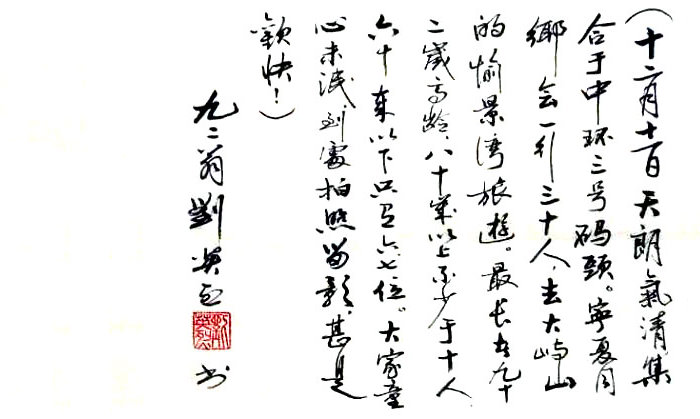 （十二月十一日天朗氣清集
合于中环三号码頭。寧夏同
鄉会一行三十人，去大嶼山
的愉景湾旅遊。最长者九十
二歲高龄、八十歲以上不少于十人
六十歲以下只有六七位。大家童
心未泯到處拍照留影，甚是
歡快！）
九二翁劉英 书